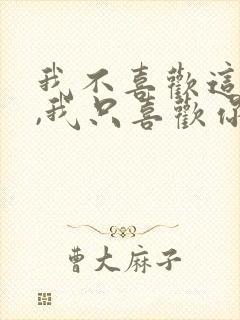 我不喜歡這
,我只喜歡你
曹大麻子